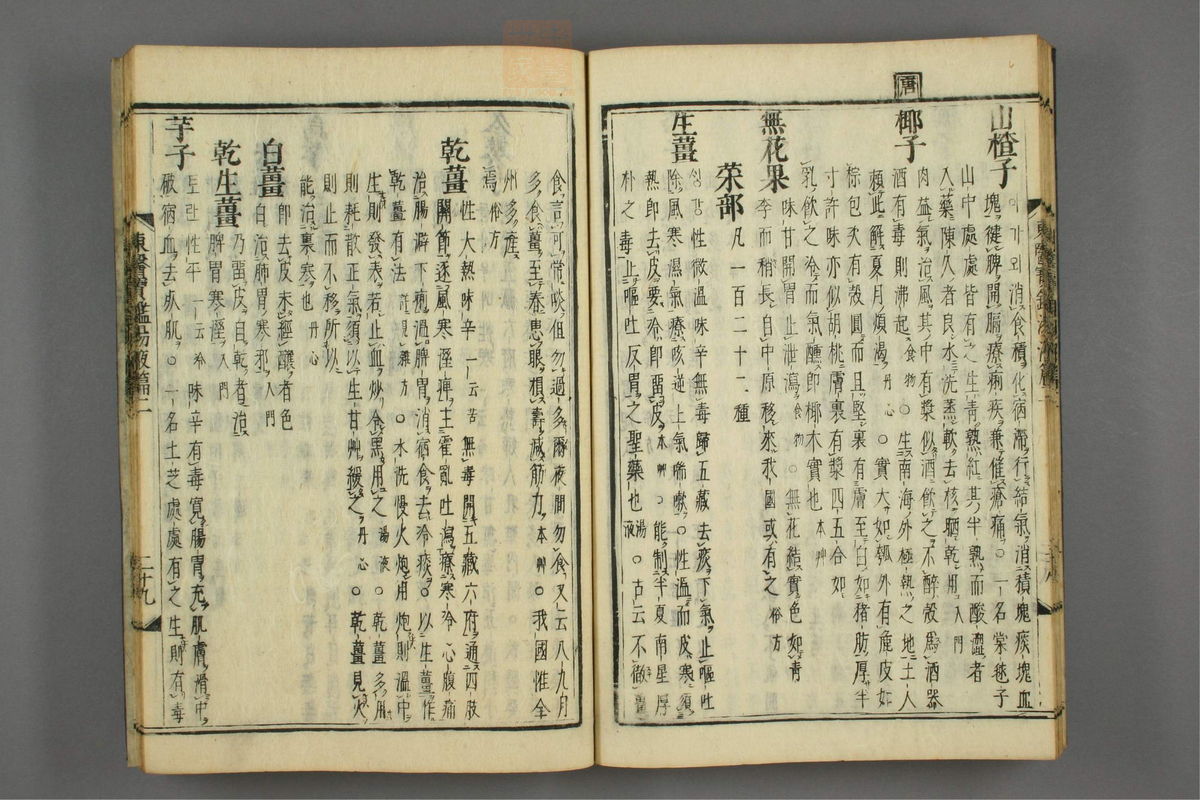 山楂子
아가외消食積化痰滯行結氣消積塊痰塊血
塊健脾開膈療痢疾兼催瘡痛○一名棠毬子
山中處處有之生青熟紅其半熟而酸澁者
入藥陳久者良水洗蒸軟去核晒乾用入門
唐
椰子
肉益氣治風其中有漿似酒飮之不醉殼爲酒器
酒有毒則沸起食物○生南海外極熱之地土人
賴此解夏月煩渴丹心○實大如瓠外有麁皮如
棕包次有殼圓而且堅裏有膚至白如猪肪厚半
寸許味亦似胡桃膚裏有漿四五合如
乳飮之冷而氣醺卽椰木實也本艸
無花果
味甘開胃止泄瀉食物○無花結實色如靑
李而稍長自中原移來我國或有之俗方
菜部凡一百二十二種
生薑
싱강性微溫味辛無毒歸五藏去痰下氣止嘔吐
除風寒濕氣療咳逆上氣喘嗽○性溫而皮寒須
熱卽去皮要冷卽留皮本艸○能制半夏南星厚
朴之毒止嘔吐反胃之聖藥也湯液○古云不徹薑
食言可常啖但勿過多爾夜間勿食又云八九月
多食薑至春患眼損壽減筋力本艸○我國惟全
州多産
焉俗方
乾薑
性大熱味辛一云苦無毒開五藏六府通四肢
關節逐風寒濕痺主霍亂吐瀉療寒冷心腹痛
治腸澼下痢溫脾胃消宿食去冷痰○以生薑作
乾薑有法詳見雜方○水洗慢火炮用炮則溫中
生則發表若止血炒食黑用之湯液○乾薑多用
則耗散正氣須以生甘艸緩之丹心○乾薑見火
則止而不移所以
能治裏寒也丹心
白薑
卽去皮未經釀者色
白治肺胃寒邪入門
乾生薑
乃留皮自乾者治
脾胃寒濕入門
芋子
토란性平一云冷味辛有毒寬腸胃充肌膚滑中
破宿血去死肌○一名土芝處處有之生則有毒
東醫寶鑑湯液篇二
二十九